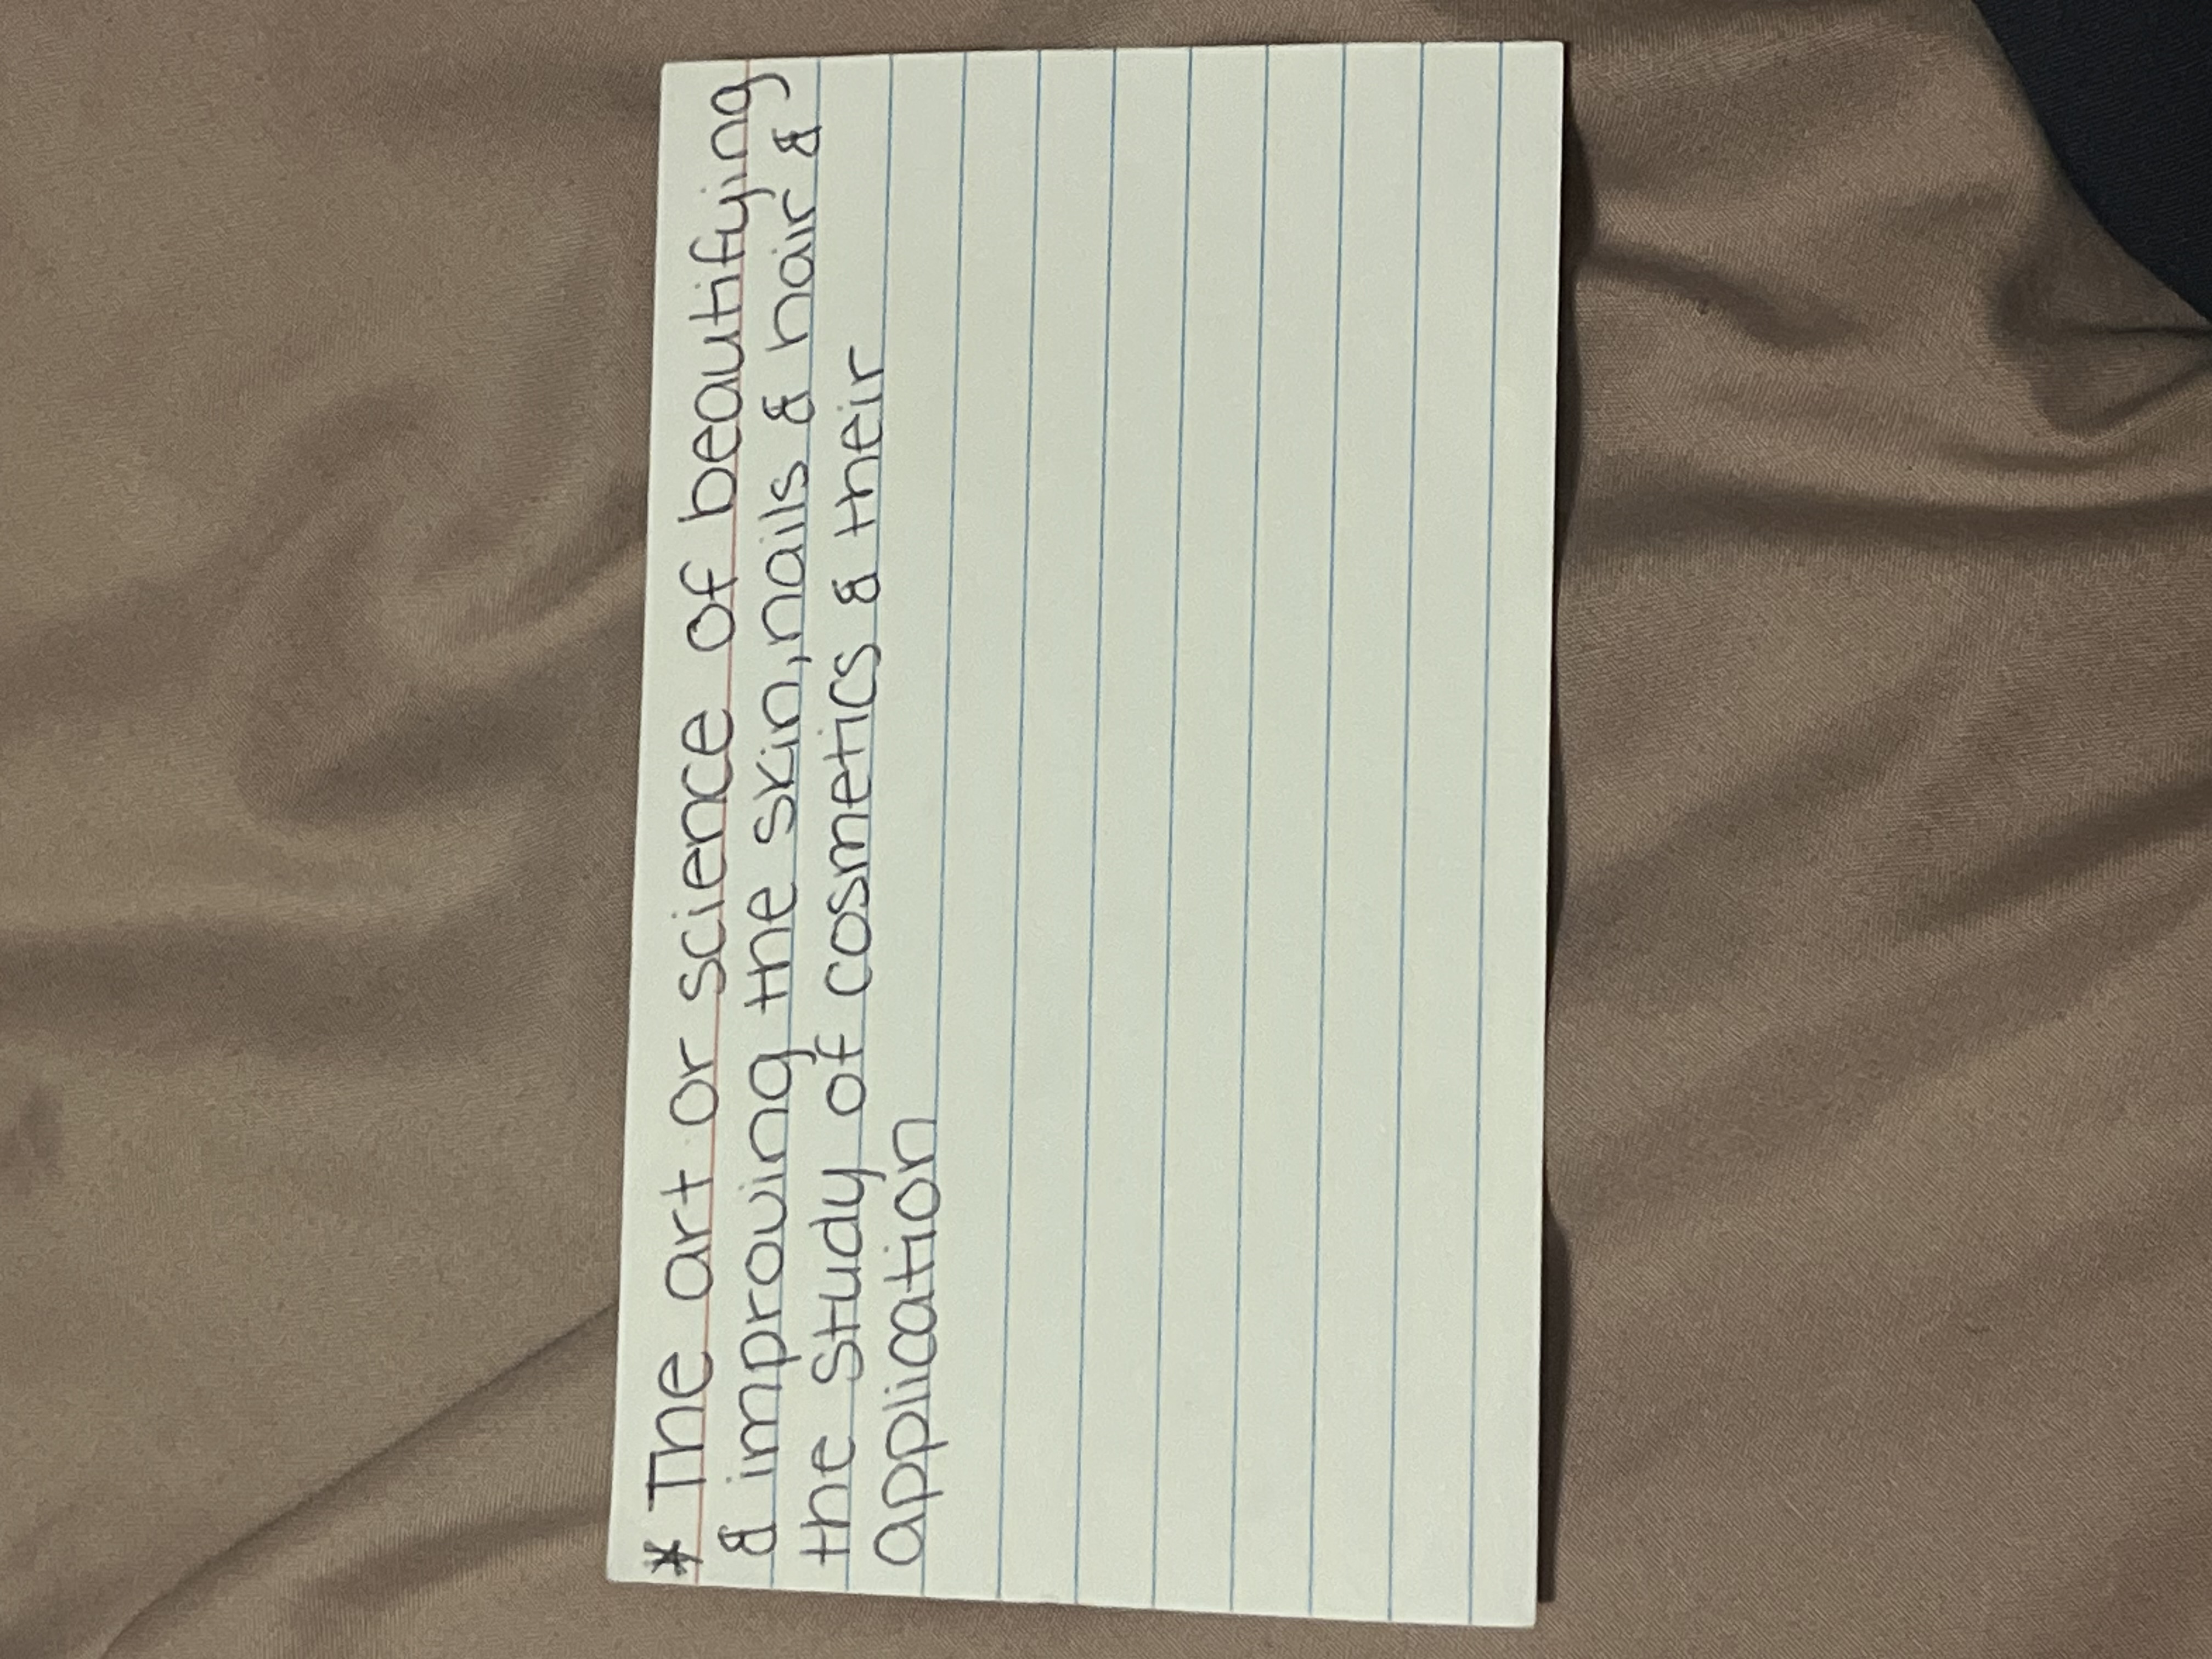 * The art or science of beautifying
& improving the skin, nails & hair &
the study of cosmetics & their
application